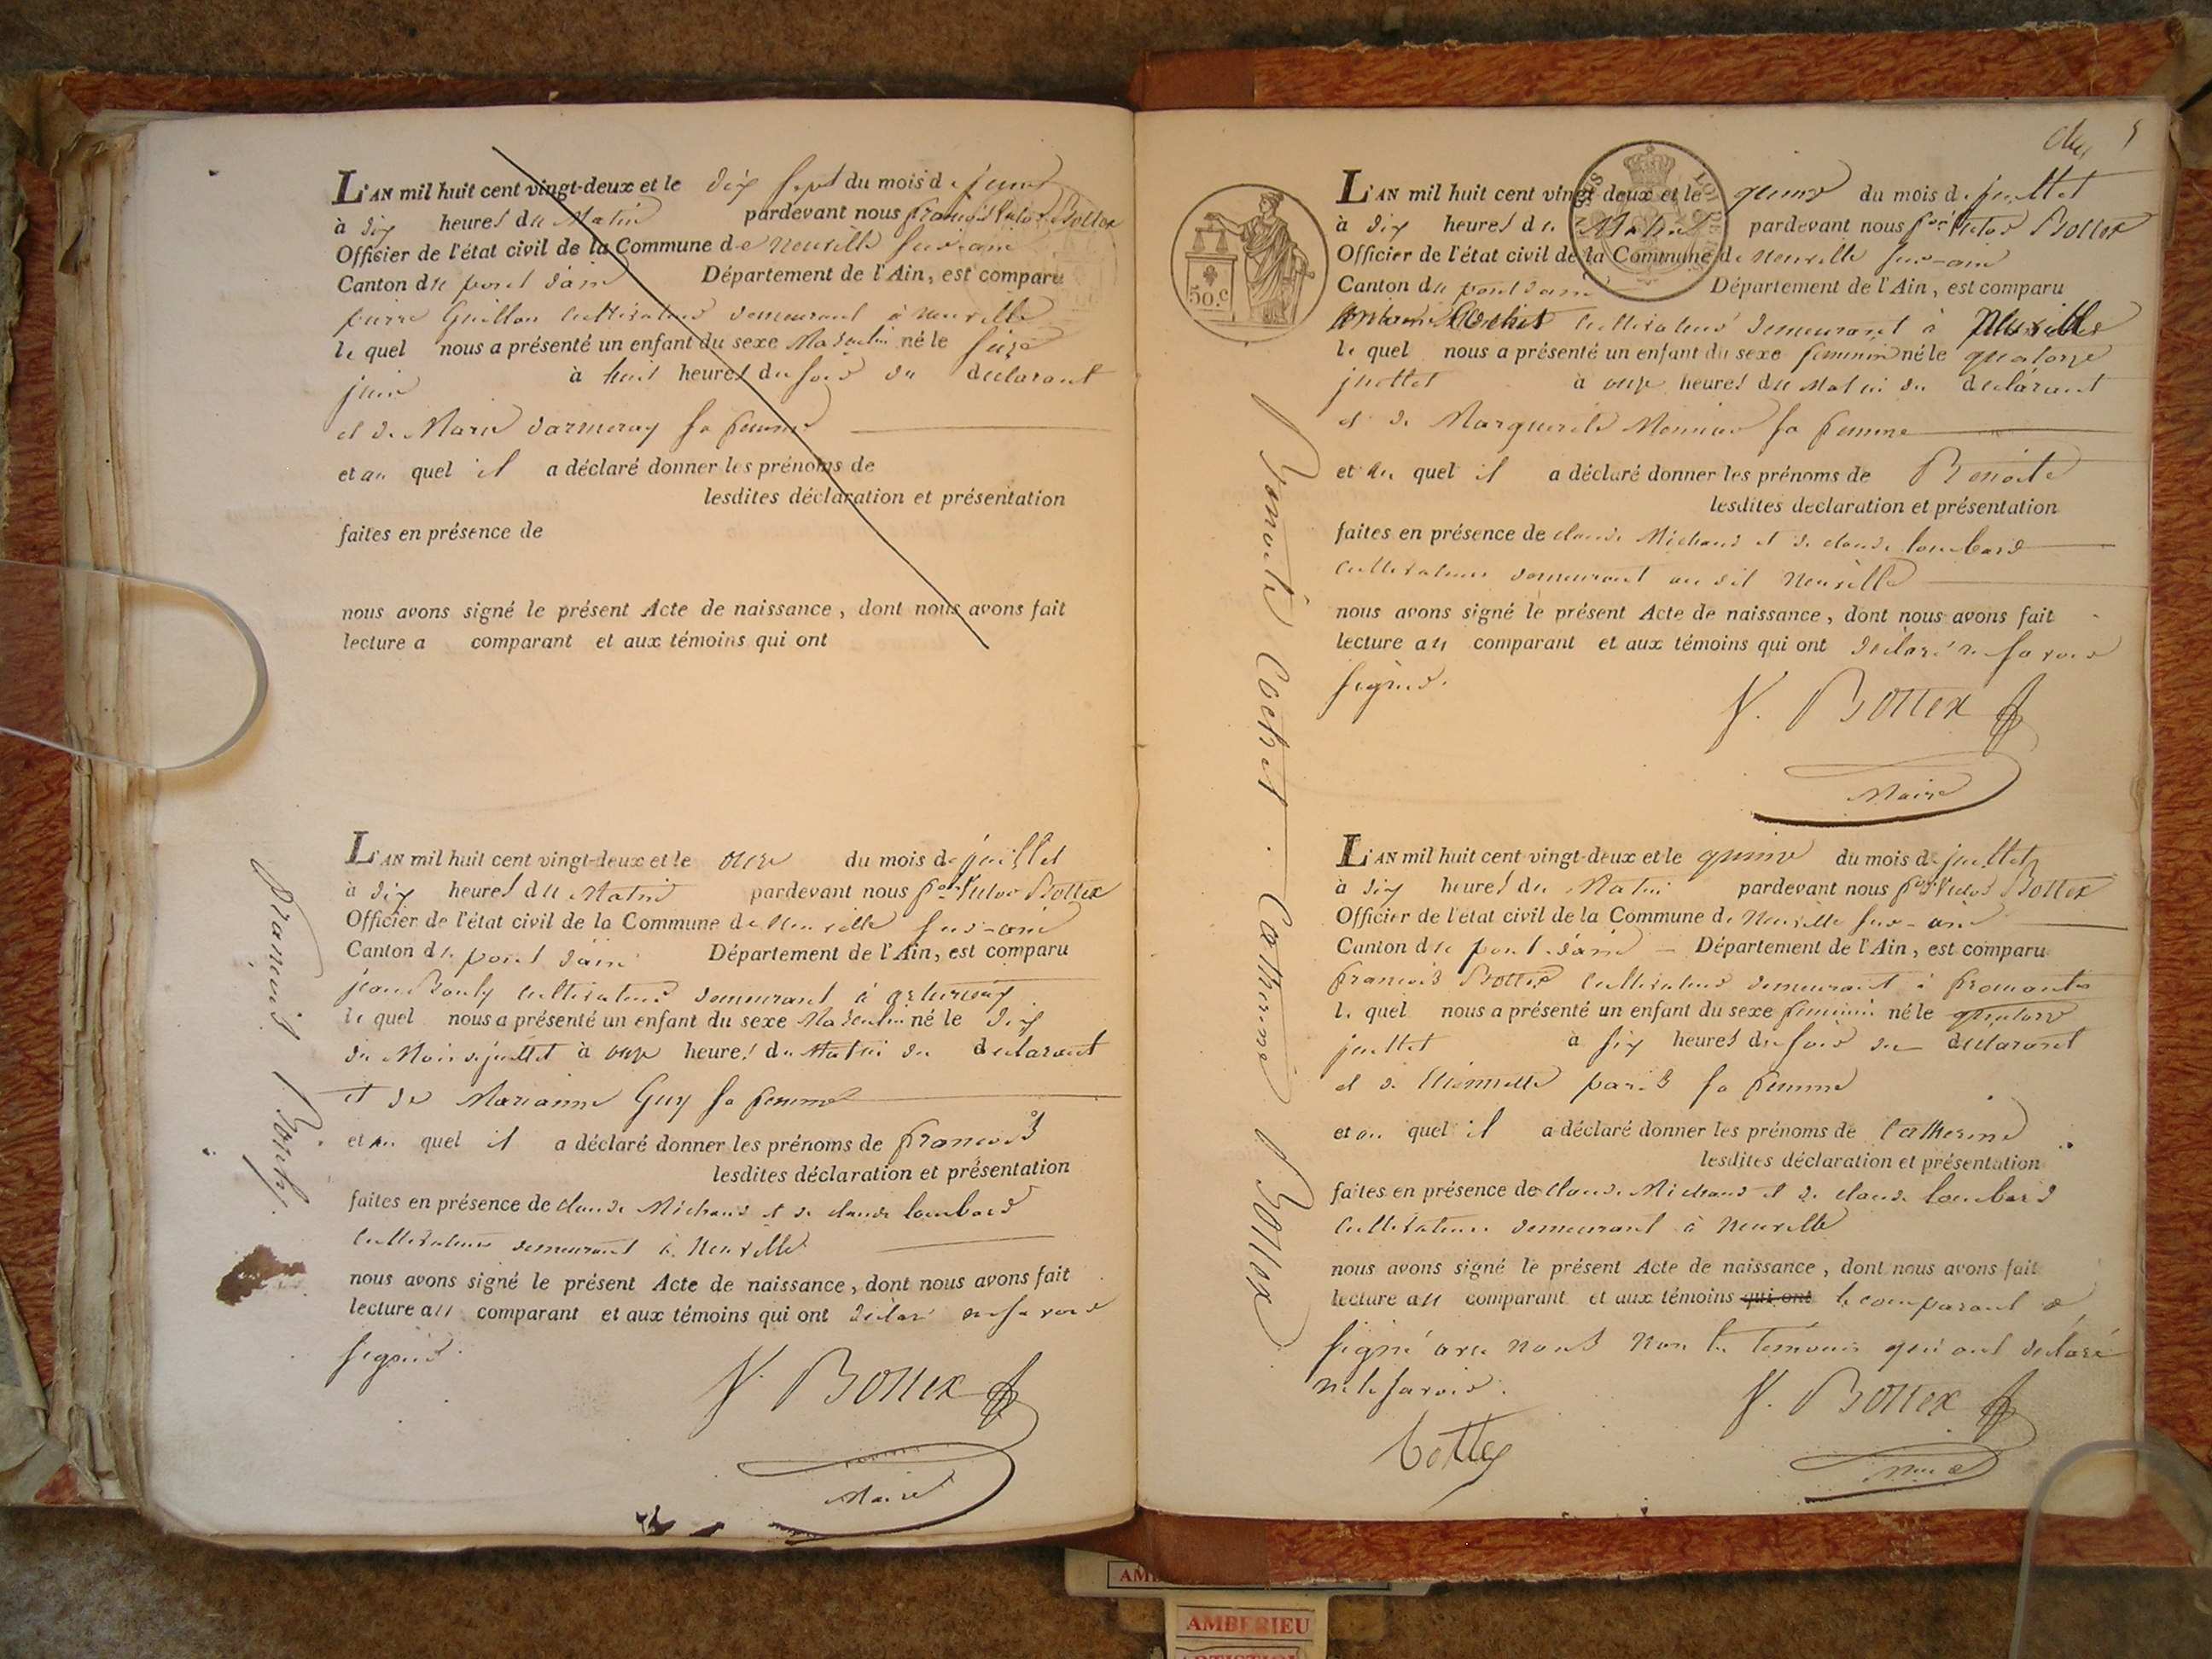 L'AN mil huit cent vingt-deux et le dix sept du mois de juin
à dix heures du Matin pardevant nous françois Victor Bottex
Officier de l'état civil de la Commune de Neuville sur ain
Canton du pont d'ain Département de l'Ain, est comparu
pierre Guillon cultivateur demeurant à neuville
le quel nous a présenté un enfant du sexe Masculin né le seize
juin à huit heures du soir du declarant
et de Marie sa femme
et au quel il a déclaré donner les prénoms de
lesdites déclaration et présentation
faites en présence de
nous avons signé le présent Acte de naissance, dont nous avons fait
lecture a comparant et aux témoins qui ont
François Bouly
L'AN mil huit cent vingt-deux et le onze du mois de juillet
à dix heures du Matin pardevant nous fois Victor Bottex
Officier de l'état civil de la Commune de Neuville sur-ain
Canton du pont d'ain Département de l'Ain, est comparu
jean Bouly cultivateur demeurant à
le quel nous a présenté un enfant du sexe Masculin né le dix
du Mois de juillet à onze heures du Matin du declarant
et de Marianne Guy sa femme
et au quel il a déclaré donner les prénoms de françois
lesdites déclaration et présentation
faites en présence de claude Michaud et de claude lombard
cultivateurs demeurant à Neuville
nous avons signé le présent Acte de naissance, dont nous avons fait
lecture au comparant et aux témoins qui ont déclaré ne savoir
signer.
V. Bottex
Maire
5
50.c
L'AN mil huit cent vingt-deux et le quinze du mois de juillet
à dix heures du Matin pardevant nous fois Victor Bottex
Officier de l'état civil de la Commune de Neuville sur-ain
Canton du pont d'ain Département de l'Ain, est comparu
Cochet cultivateur demeurant à Neuville
le quel nous a présenté un enfant du sexe feminin né le quatorze
juillet à onze heures du Matin du declarant
et de Marguerite Monnier sa femme
et au quel il a déclaré donner les prénoms de Benoite
lesdites declaration et présentation
faites en présence de claude Michaud et de claude lombard
cultivateurs demeurant au dit Neuville
nous avons signé le présent Acte de naissance, dont nous avons fait
lecture au comparant et aux témoins qui ont déclaré ne savoir
signer.
V. Bottex
Maire
Benoite Cochet. Catherine Bottex
L'AN mil huit cent vingt-deux et le quinze du mois de juillet
à dix heures du Matin pardevant nous fois Victor Bottex
Officier de l'état civil de la Commune de Neuville sur-ain
Canton du pont d'ain Département de l'Ain, est comparu
françois Bottex cultivateur demeurant à fromente
le quel nous a présenté un enfant du sexe feminin né le quatorze
juillet à six heures du soir du declarant
et de Etiennette paris sa femme
et au quel il a déclaré donner les prénoms de Catherine
lesdites déclaration et présentation
faites en présence de claude Michaud et de claude lombard
cultivateurs demeurant à Neuville
nous avons signé le présent Acte de naissance, dont nous avons fait
lecture au comparant et aux témoins qui ont le comparant a
signé avec nous non les temoins qui ont déclaré
ne le savoir.
V. Bottex
bottex
Maire
AMBERIEU